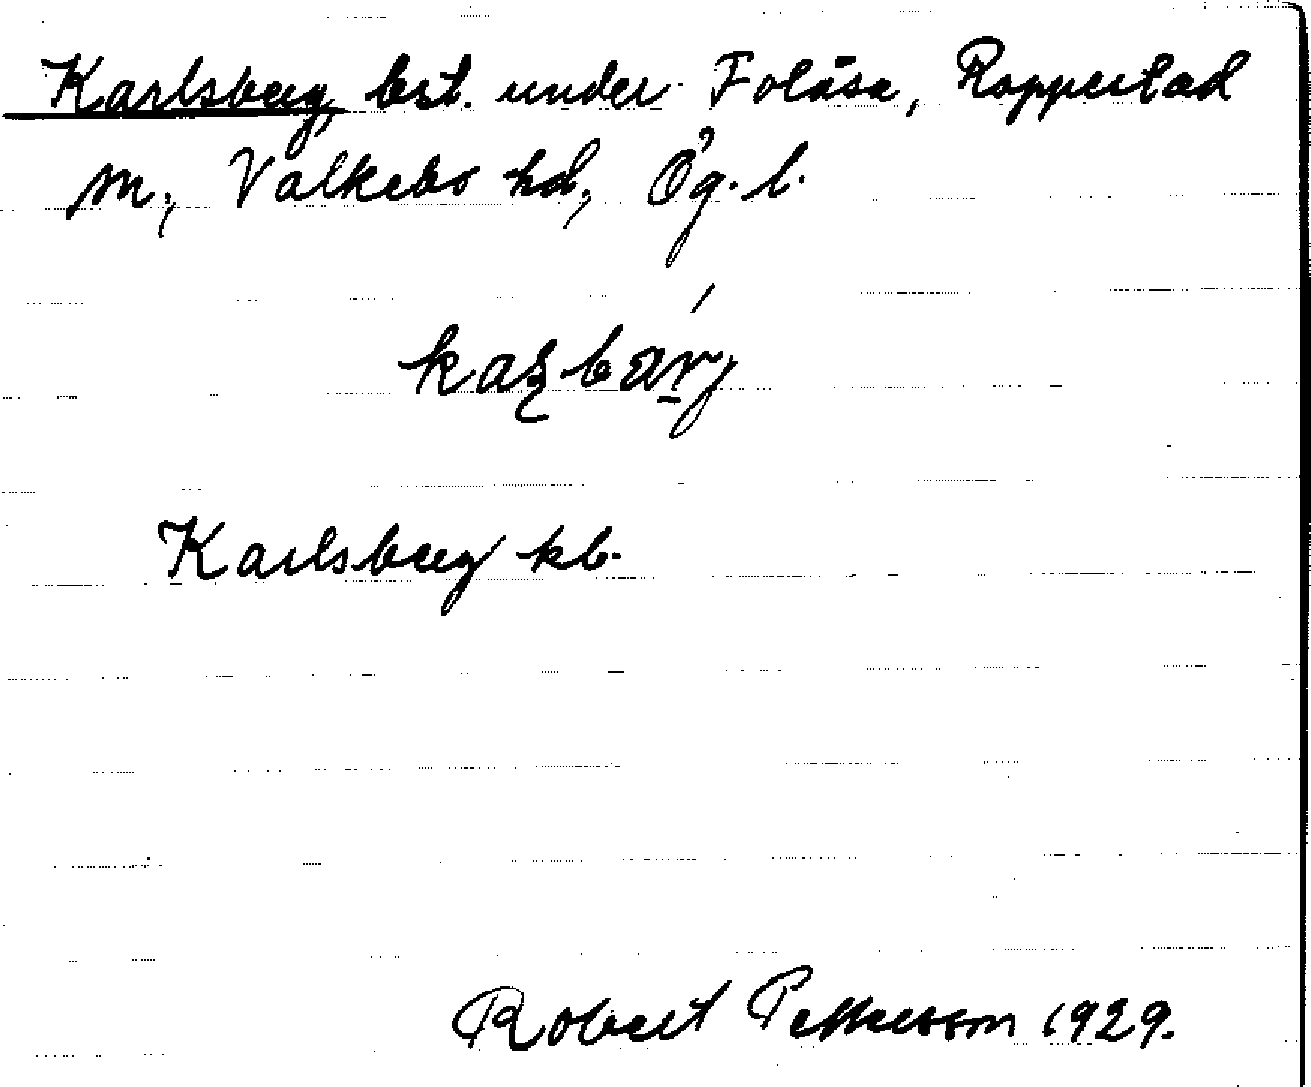 Karlsberg, bst. under Folåsa, Rappestad
sn, Valkebo hd, Ög. l.
Karlsberg kb.
Robert Pettersson 1929.